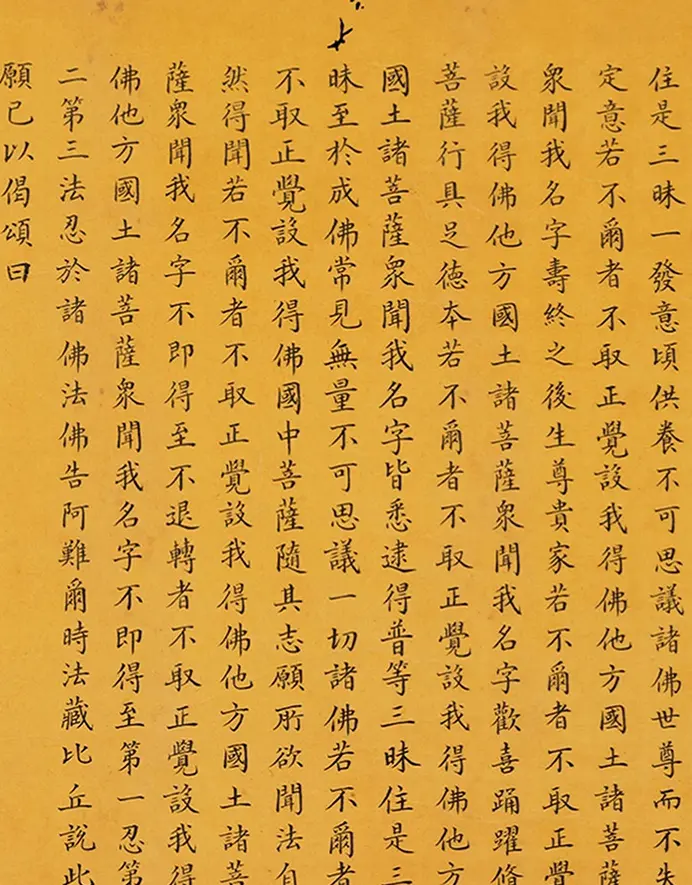 住是三昧一發意頃供養不可思議諸佛世尊而不失
定意若不爾者不取正覺設我得佛他方國土諸菩薩
衆聞我名字壽終之後生尊貴家若不爾者不取正覺
設我得佛他方國土諸菩薩衆聞我名字歡喜踊躍修
菩薩行具足德本若不爾者不取正覺設我得佛他方
國土諸菩薩衆聞我名字皆悉逮得普等三昧住是三
昧至於成佛常見無量不可思議一切諸佛若不爾者
不取正覺設我得佛國中菩薩隨其志願所欲聞法自
然得聞若不爾者不取正覺設我得佛他方國土諸菩
薩衆聞我名字不即得至不退轉者不取正覺設我得
佛他方國土諸菩薩衆聞我名字不即得至第一忍第
二第三法忍於諸佛法佛告阿難爾時法藏比丘說此
願已以偈頌曰